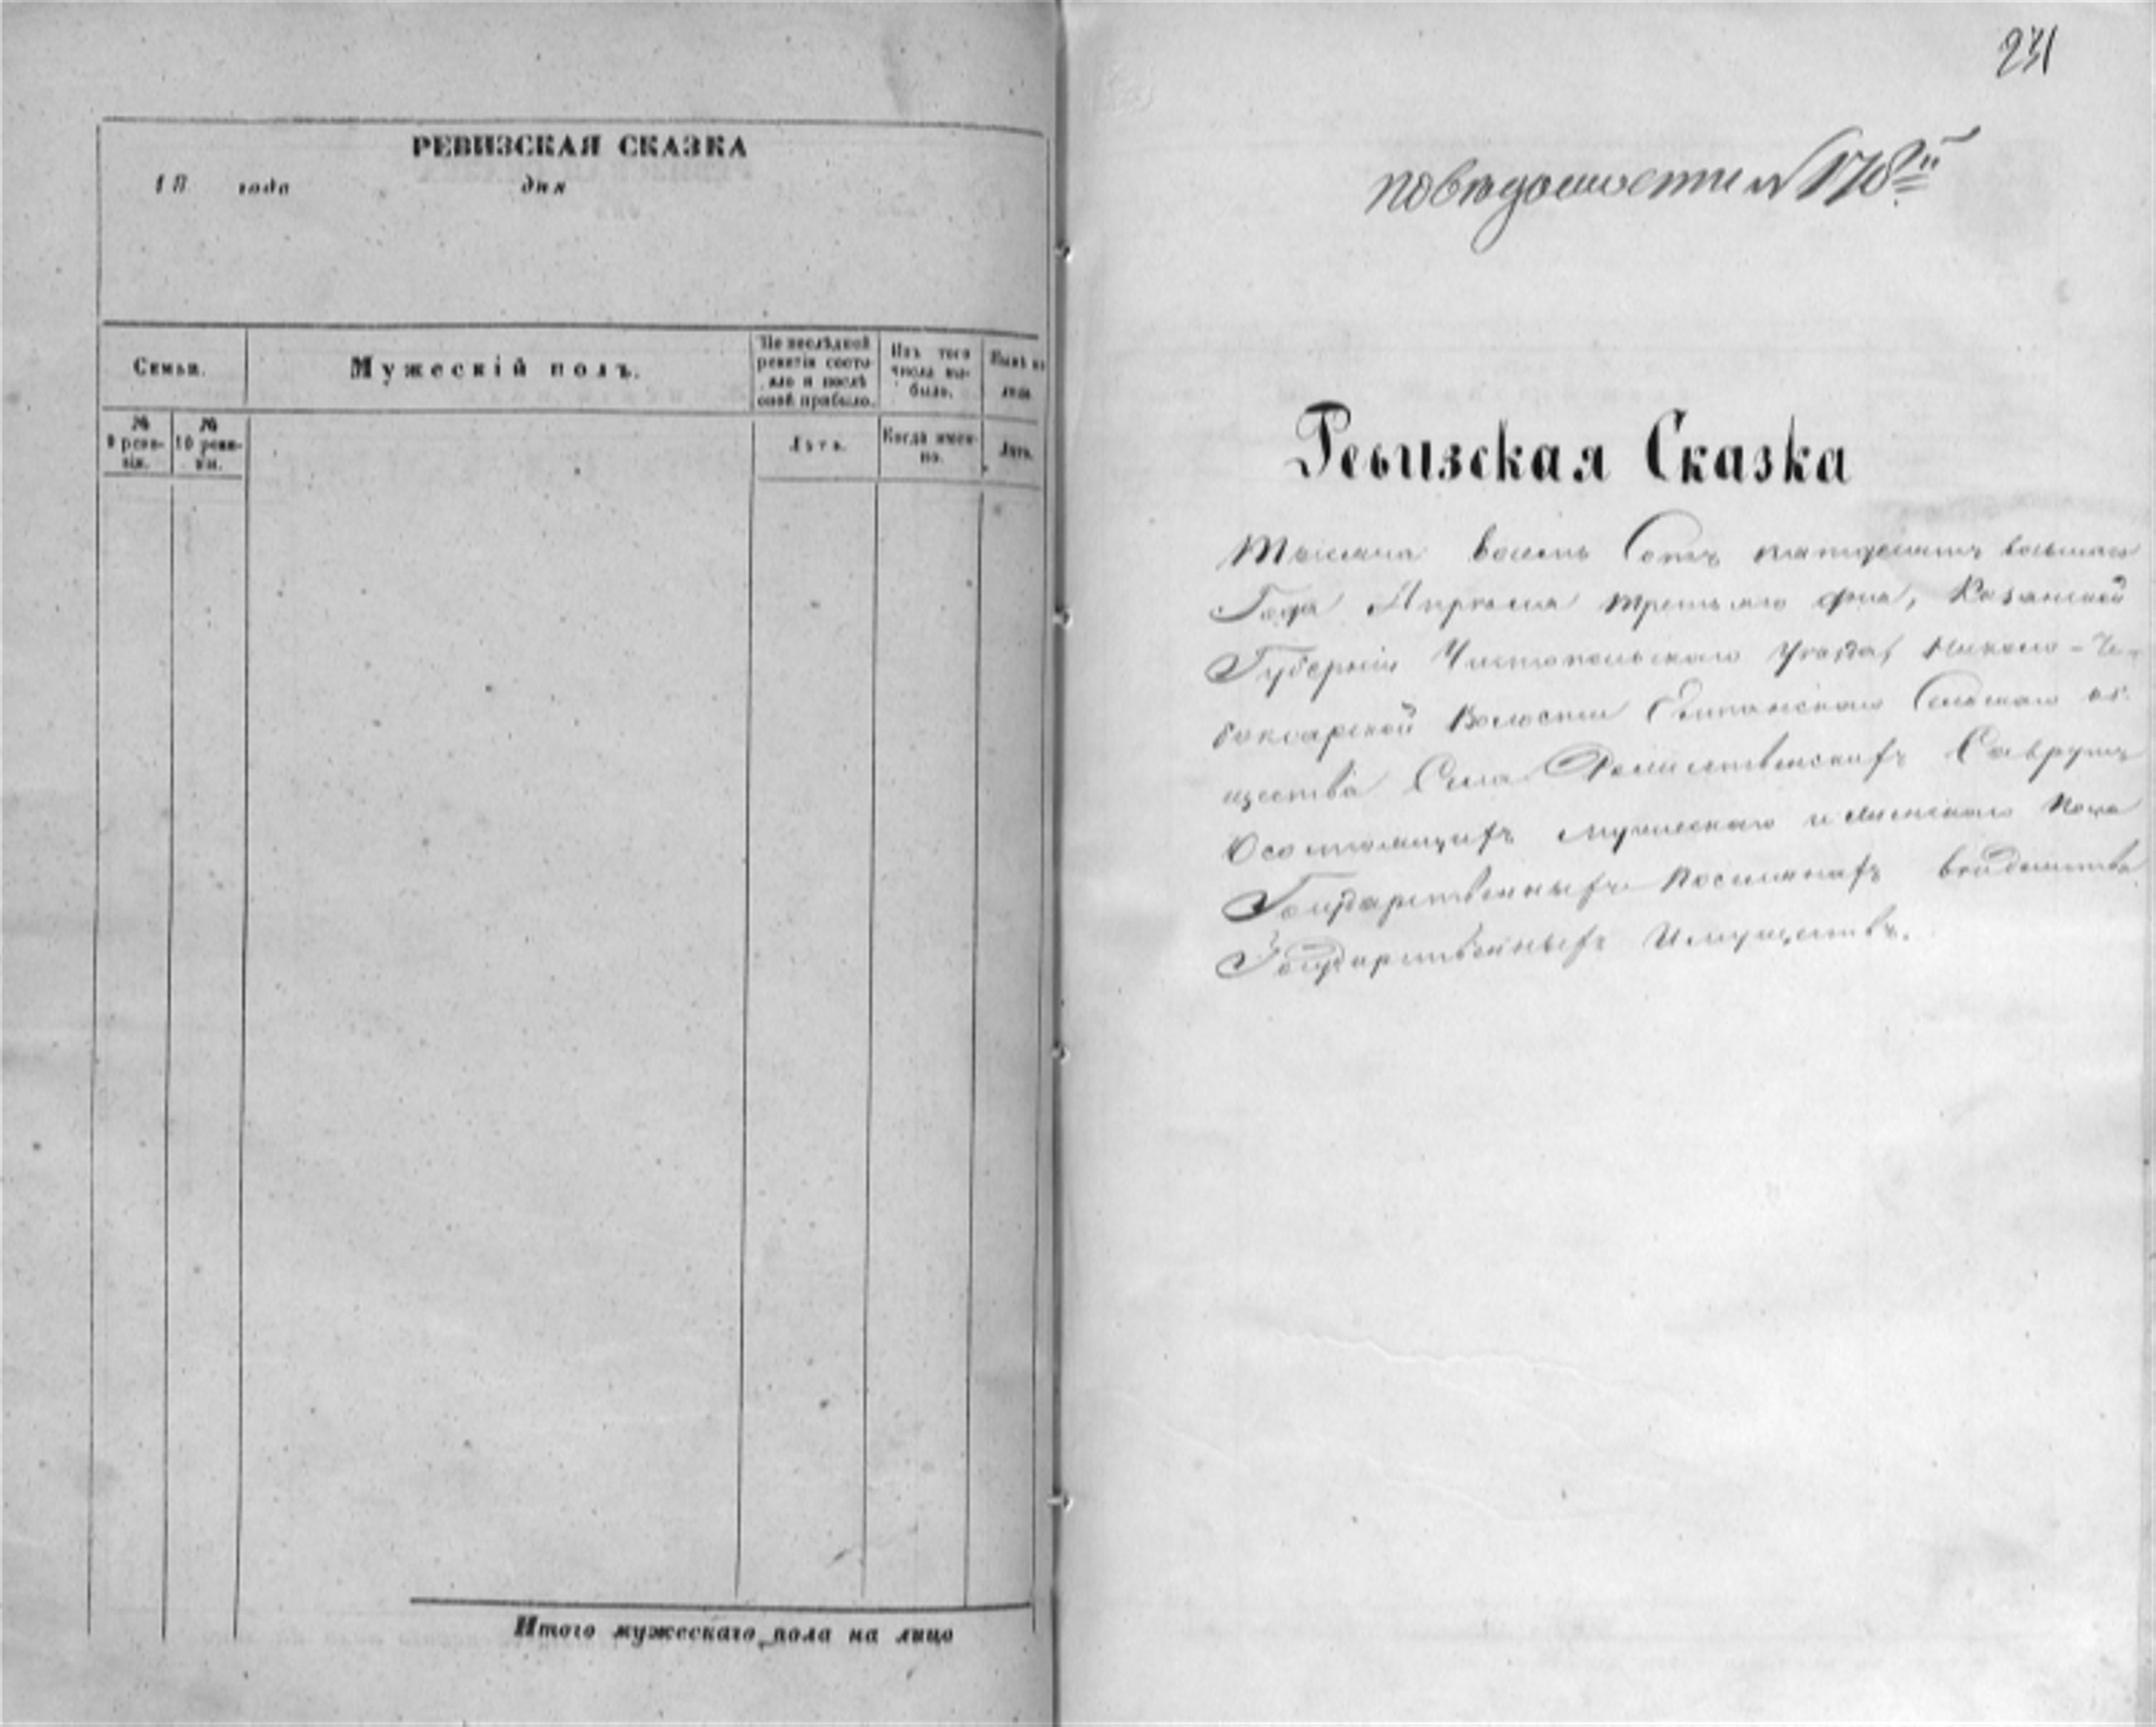 РЕВИЗСКАЯ СКАЗКА
18 года дня
Семьи.
Мужескій полъ.
По послѣдней ревизіи состояло и послѣ оной прибыло.
Изъ того числа выбыло.
Нынѣ на лицо
№ 9 ревизіи.
№ 10 ревизіи.
Лѣта.
Когда именно.
Лѣта.
Итого мужескаго пола на лицо
231
по вѣдомости № 178й
Ревизская Сказка
Тысяча восемь Сотъ пятдесятъ восьмаго
Года Апрѣля третьяго дня, Казанской
Губерніи Чистопольскаго Уѣзда, Николо-Че-
боксарской Волости Сельскаго об
щества Села Рождественскихъ Саврушъ
О состоящихъ мужескаго и женскаго пола
Государственныхъ Поселянахъ вѣдомства
Государственныхъ Имуществъ.